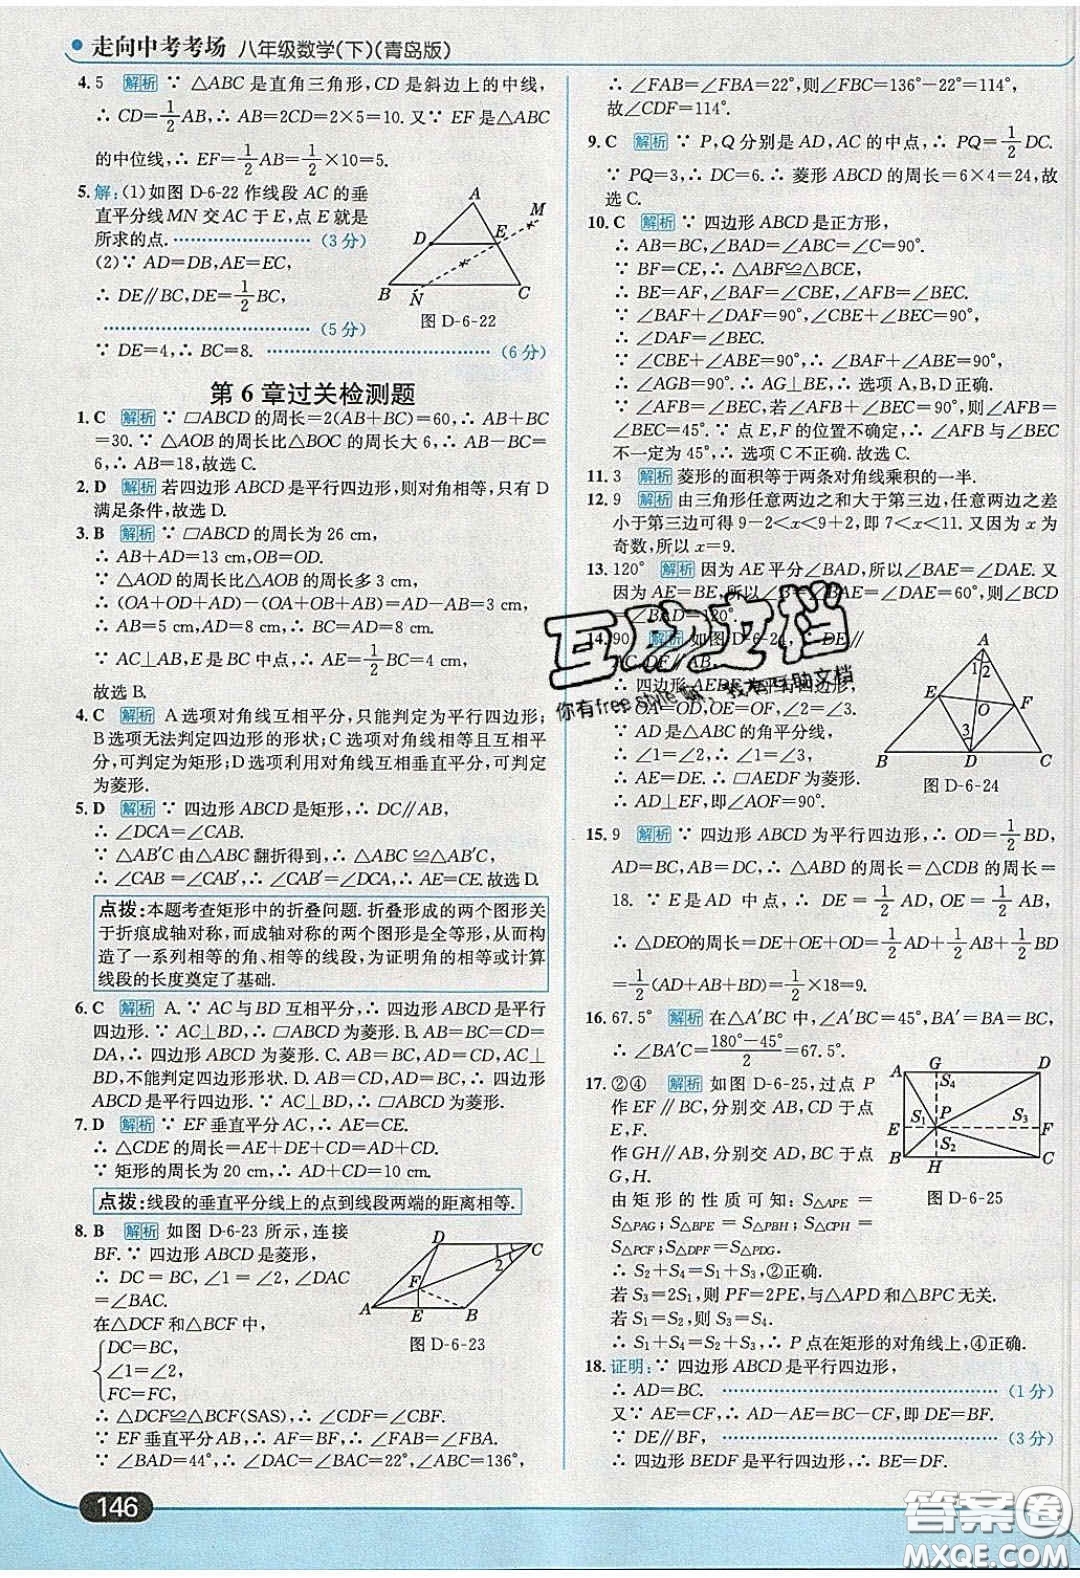 走向中考考场 八年级数学(下)(青岛版)
4. 5 解析 ∵ △ABC 是直角三角形, CD 是斜边上的中线,
∴ CD=1/2AB,∴ AB=2CD=2×5=10. 又∵ EF 是△ABC
的中位线,∴ EF=1/2AB=1/2×10=5.
5. 解:(1)如图 D-6-22 作线段 AC 的垂
直平分线MN 交 AC 于 E,点 E 就是
所求的点. (3 分)
(2)∵ AD=DB,AE=EC,
∴ DE∥BC,DE=1/2BC,
(5 分)
∵ DE=4,∴ BC=8. (6 分)
A
M
D
E
B
N
C
图 D-6-22
第 6 章过关检测题
1. C 解析 ∵ □ABCD 的周长=2(AB+BC)=60,∴ AB+BC
=30. ∵ △AOB 的周长比△BOC 的周长大 6,∴ AB-BC=
6,∴ AB=18,故选 C.
2. D 解析 若四边形 ABCD 是平行四边形,则对角相等,只有 D
满足条件,故选 D.
3. B 解析 ∵ □ABCD 的周长为 26 cm,
∴ AB+AD=13 cm,OB=OD.
∵ △AOD 的周长比△AOB 的周长多 3 cm,
∴ (OA+OD+AD)-(OA+OB+AB)=AD-AB=3 cm,
∴ AB=5 cm,AD=8 cm,∴ BC=AD=8 cm.
∵ AC⊥AB,E 是 BC 中点,∴ AE=1/2BC=4 cm,
故选 B.
4. C 解析 A选项对角线互相平分,只能判定为平行四边形;
B选项无法判定四边形的形状;C 选项对角线相等且互相平
分,可判定为矩形;D选项利用对角线互相垂直平分,可判定
为菱形.
5. D 解析 ∵ 四边形 ABCD 是矩形,∴ DC∥AB,
∴ ∠DCA=∠CAB.
∵ △AB′C 由△ABC 翻折得到,∴ △ABC ≌△AB′C,
∴ ∠CAB =∠CAB′,∴ ∠CAB′=∠DCA,∴ AE=CE. 故选 D.
点拨:本题考查矩形中的折叠问题. 折叠形成的两个图形关
于折痕成轴对称,而成轴对称的两个图形是全等形,从而构
造了一系列相等的角、相等的线段,为证明角的相等或计算
线段的长度奠定了基础.
6. C 解析 A. ∵ AC 与 BD 互相平分,∴ 四边形 ABCD 是平行
四边形. ∵ AC⊥BD,∴ □ABCD 为菱形. B. AB=BC=CD=
DA,∴ 四边形 ABCD 为菱形. C. AB=BC,AD=CD,AC⊥
BD,不能判定四边形形状. D. AB=BC,AD=CD,AC⊥BD,
∴ □ABCD 为平行四边形. ∵ AC⊥BD,∴ □ABCD 为菱形.
7. D 解析 ∵ EF 垂直平分 AC,∴ AE=CE.
∴ △CDE 的周长=AE+DE+CD=AD+CD.
∵ 矩形的周长为 20 cm,∴ AD+CD=10 cm.
点拨:线段的垂直平分线上的点到线段两端的距离相等.
8. B 解析 如图 D-6-23 所示,连接
BF. ∵ 四边形 ABCD 是菱形,
∴ DC = BC,∠1 = ∠2,∠DAC
=∠BAC.
在△DCF 和△BCF 中,
DC=BC,
∠1=∠2,
FC=FC,
D
C
1
2
F
A
E
B
图 D-6-23
∴ △DCF≌△BCF(SAS),∴ ∠CDF=∠CBF.
∵ EF 垂直平分 AB,∴ AF=BF,∴ ∠FAB=∠FBA.
∵ ∠BAD=44°,∴ ∠DAC=∠BAC=22°,∠ABC=136°,
∴ ∠FAB=∠FBA=22°,则∠FBC=136°-22°=114°,
故∠CDF=114°.
9. C 解析 ∵ P,Q 分别是 AD,AC 的中点,∴ PQ=1/2DC.
∵ PQ=3,∴ DC=6. ∴ 菱形 ABCD 的周长=6×4=24,故
选 C.
10. C 解析 ∵ 四边形 ABCD 是正方形,
∴ AB=BC,∠BAD=∠ABC=∠C=90°.
∵ BF=CE,∴ △ABF≌△BCE,
∴ BE=AF,∠BAF=∠CBE,∠AFB=∠BEC.
∵ ∠BAF+∠DAF=90°,∠CBE+∠BEC=90°,
∴ ∠DAF=∠BEC.
∵ ∠CBE+∠ABE=90°,∴ ∠BAF+∠ABE=90°,
∴ ∠AGB=90°. ∴ AG⊥BE,∴ 选项 A,B,D 正确.
∵ ∠AFB=∠BEC,若∠AFB+∠BEC=90°,则∠AFB=
∠BEC=45°. ∵ 点 E,F 的位置不确定,∴ ∠AFB 与∠BEC
不一定为 45°,∴ 选项 C 不正确. 故选 C.
11. 3 解析 菱形的面积等于两条对角线乘积的一半.
12. 9 解析 由三角形任意两边之和大于第三边,任意两边之差
小于第三边可得 9-2<x<9+2,即 7<x<11. 又因为 x 为
奇数,所以 x=9.
13. 120° 解析 因为 AE 平分∠BAD,所以∠BAE=∠DAE. 又
因为AE=BE,所以∠B=∠BAE=∠DAE=60°,则∠BCD
=∠BAD=120°.
14. 90 解析 如图D-6-24,∵ DE∥
AC,DF∥AB,
∴ 四边形 AEDF 为平行四边形,
∴ OA=OD,OE=OF,∠2=∠3.
∵ AD 是△ABC 的角平分线,
∴ ∠1=∠2,∴ ∠1=∠3,
∴ AE=DE. ∴ □AEDF 为菱形.
∴ AD⊥EF,即∠AOF=90°.
A
1
2
E
O
F
3
B
D
C
图 D-6-24
15. 9 解析 ∵ 四边形 ABCD 为平行四边形,∴ OD=1/2BD,
AD=BC,AB=DC,∴ △ABD 的周长=△CDB 的周长=
18. ∵ E 是 AD 中点,∴ DE = 1/2AD,OE = 1/2AB,
∴ △DEO的周长=DE+OE+OD=1/2AD+1/2AB+1/2BD
=1/2(AD+AB+BD)=1/2×18=9.
16. 67.5° 解析 在△A′BC 中,∠A′BC=45°,BA′=BA=BC,
∴ ∠BA′C=(180°-45°)/2=67.5°.
17. ②④ 解析 如图 D-6-25,过点 P
作 EF∥BC,分别交 AB,CD 于点
E,F.
作 GH∥AB,分别交 AD,BC 于点
G,H.
由矩形的性质可知: S△APE =
S△PAG;S△BPE = S△PBH;S△CPH =
S△PCF;S△DPF=S△PDG.
A
G
D
S4
S1
P
S3
E
F
S2
B
H
C
图 D-6-25
∴ S2+S4=S1+S3,②正确.
若 S3=2S1,则 PF=2PE,与△APD 和△BPC 无关.
若 S1=S2,则 S3=S4.
∴ S1+S4=S2+S3,∴ P 点在矩形的对角线上,④正确.
18. 证明:∵ 四边形 ABCD 是平行四边形,
∴ AD=BC. (1 分)
又∵ AE=CF,∴ AD-AE=BC-CF,即 DE=BF.
∵ DE∥BF, (3 分)
∴ 四边形 BEDF 是平行四边形,∴ BE=DF.
146
互助文档
你有free style嘛,我有互助文档
答案圈
MXQE.COM